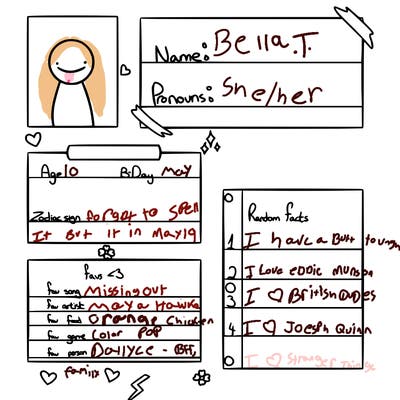 Name: Bella.T.
Pronouns: She/her
Age 10 BiDay May
Zodiac sign forget to spell
It But it in May19
favs <3
fav song Missing out
fav artist maya Hawke
fav food orange chicken
fav game Color PoP
fav person Dallyce - BFF,
family
Random facts
1 I have a Butt tough
2 I Love eddie munson
3 I ♡ British dudes
4 I ♡ Joesph Quinn
I ♡ Stranger Things